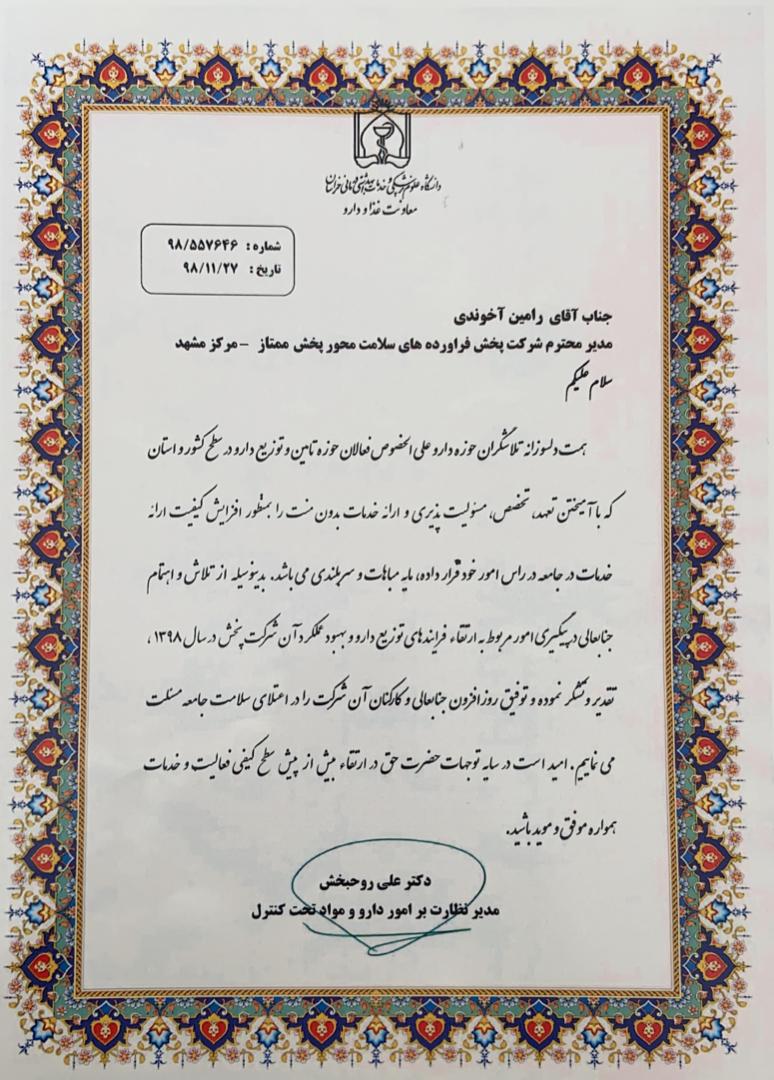 دانشگاه علوم پزشکی و خدمات بهداشتی درمانی خراسان
معاونت غذا و دارو
شماره : ۹۸/۵۵۷۶۴۶
تاریخ : ۹۸/۱۱/۲۷
جناب آقای رامین آخوندی
مدیر محترم شرکت پخش فراورده های سلامت محور پخش ممتاز - مرکز مشهد
سلام علیکم
همت دلسوزانه تلاشگران حوزه دارو علی الخصوص فعالان حوزه تامین و توزیع دارو در سطح کشور و استان
که با آمیختن تعهد، تخصص، مسئولیت پذیری و ارائه خدمات بدون منت را بمنظور افزایش کیفیت ارائه
خدمات در جامعه در راس امور خود قرار داده، مایه مباهات و سربلندی می باشد. بدینوسیله از تلاش و اهتمام
جنابعالی در پیگیری امور مربوط به ارتقاء فرایندهای توزیع دارو و بهبود عملکرد آن شرکت پخش در سال ۱۳۹۸ ،
تقدیر و تشکر نموده و توفیق روزافزون جنابعالی و کارکنان آن شرکت را در اعتلای سلامت جامعه مسئلت
می نماییم. امید است در سایه توجهات حضرت حق در ارتقاء بیش از پیش سطح کیفی فعالیت و خدمات
همواره موفق و موید باشید.
دکتر علی روحبخش
مدیر نظارت بر امور دارو و مواد تحت کنترل